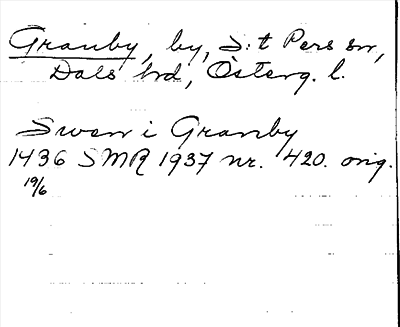 Granby, by, S:t Pers sn,
Dals hd, Österg. l.
Swen i Granby
1436 SMR 1937 nr. 420. orig.
19/6